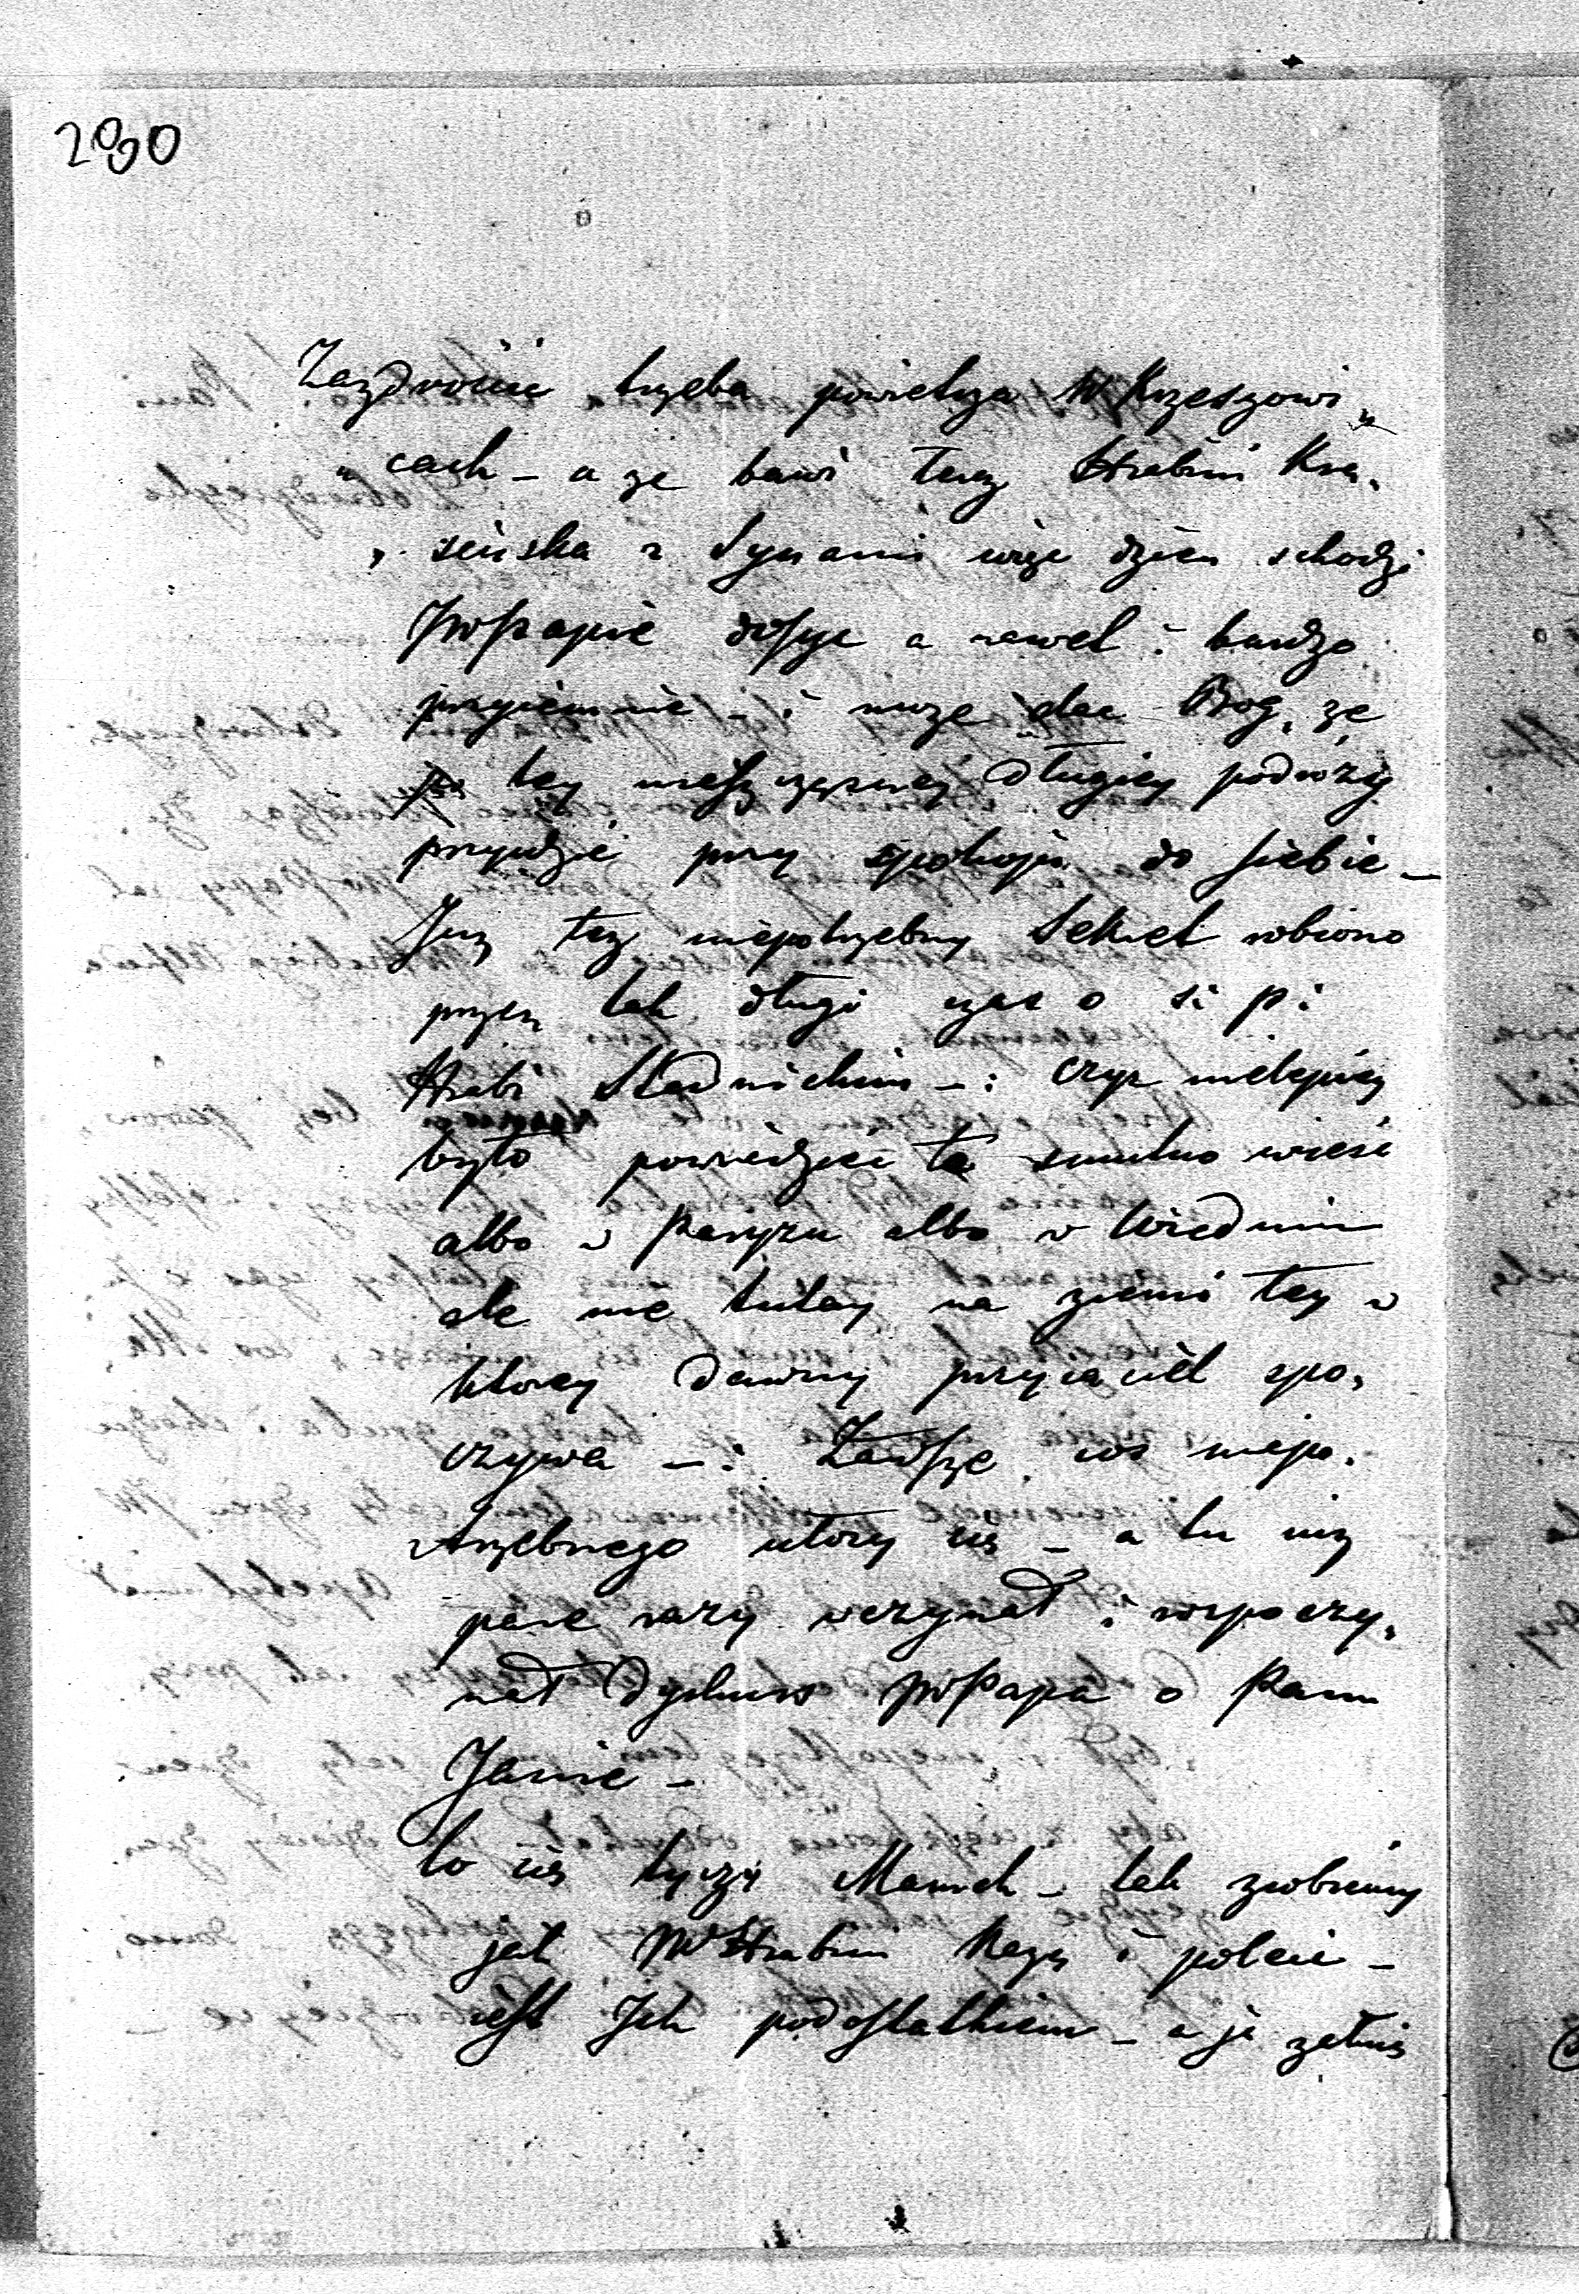 2090
Zazdrościć trzeba powietrza W Krzeszowi„
„cach – a ze bawi teraz Hrabini Kra„
„seinska z Synami więc dzien schodzi
JWPapie dosyc a nawet i bardzo
przyiemnie – i moze dac Bog, ze
po tey nieszczęsney długiey podroży
przydzie przy spokoju do siebie –
Juz tez niepotrzebny Sekret robiono
przez tak długi czas o s: p:
Hrabi Stadnickim – : czyz nielepiey
było powiedzieć tę smutno wieść
albo w Paryzu albo w Wiedniu
ale nie tutay na ziemi tey w
ktorey dawny przyiaciel spo„
czywa – : Zawsze cos niepo„
trzebnego utozy się – a tu iuz
pare razy wczynał i rozpoczy„
nał Dyskurs JWPapa o Panu
Janie –
Co się tyczy Mamek – tak zrobiemy
jak JWHrabini kazę i poleci –
iest Ich podostatkiem – a ja